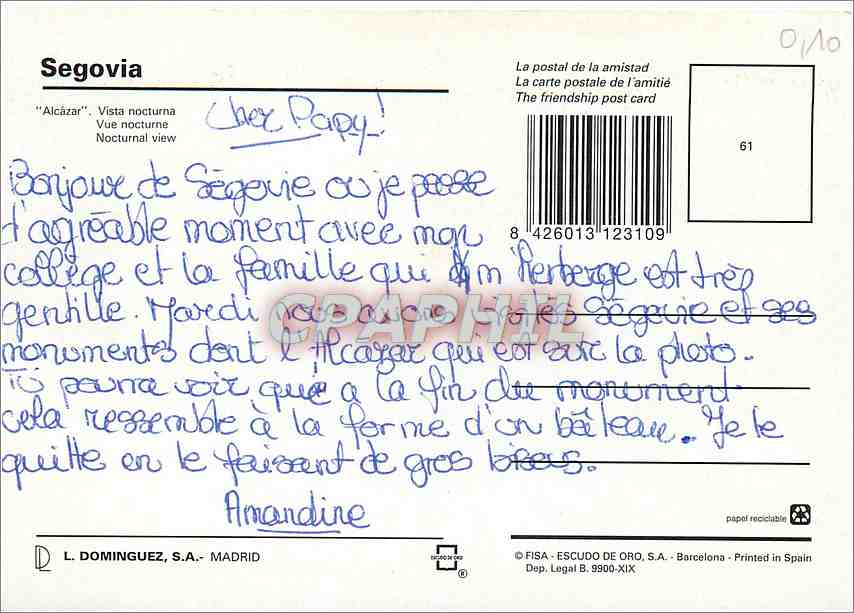 0,10
Segovia
"Alcázar". Vista nocturna
Vue nocturne
Nocturnal view
La postal de la amistad
La carte postale de l'amitié
The friendship post card
61
8 426013 123109
Cher Papy!
Bonjour de Ségovie ou je passe
d'agréable moment avec mon
collège et la famille qui m'herberge est très
gentille. Mardi nous avons Ségovie et ses
monuments dont l'Alcazar qui est sur la photo.
Tu pourra voir que a la fin du monument
cela ressemble à la forme d'un bâteau. Je te
quitte en te faisant de gros bisous.
Amandine
CPAPHIL
papel reciclable
L. DOMINGUEZ, S.A.- MADRID
ESCUDO DE ORO
®
© FISA - ESCUDO DE ORO, S.A. - Barcelona - Printed in Spain
Dep. Legal B. 9900-XIX